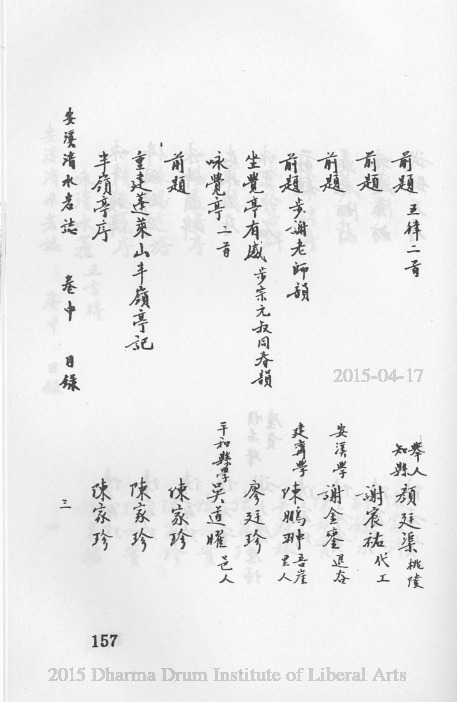 前題 五律二首 舉人知縣 顏廷渠 桃陵
前題 謝宸祐 代工
前題 安溪學 謝金鑾 退谷
前題步謝老師韻 建寧學 陳鵬翀 吾崖 邑人
坐覺亭有感 步宗元叔同春韻 廖廷珍
咏覺亭 二首 平和縣學 吳道曜 邑人
前題 陳家珍
重建蓬萊山半嶺亭記 陳家珍
半嶺亭序 陳家珍
安溪清水岩誌 卷中 目錄 三
157
2015-04-17
2015 Dharma Drum Institute of Liberal Arts